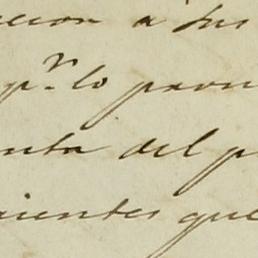 cion a sus
pr. lo pron
nta del p
cientes que